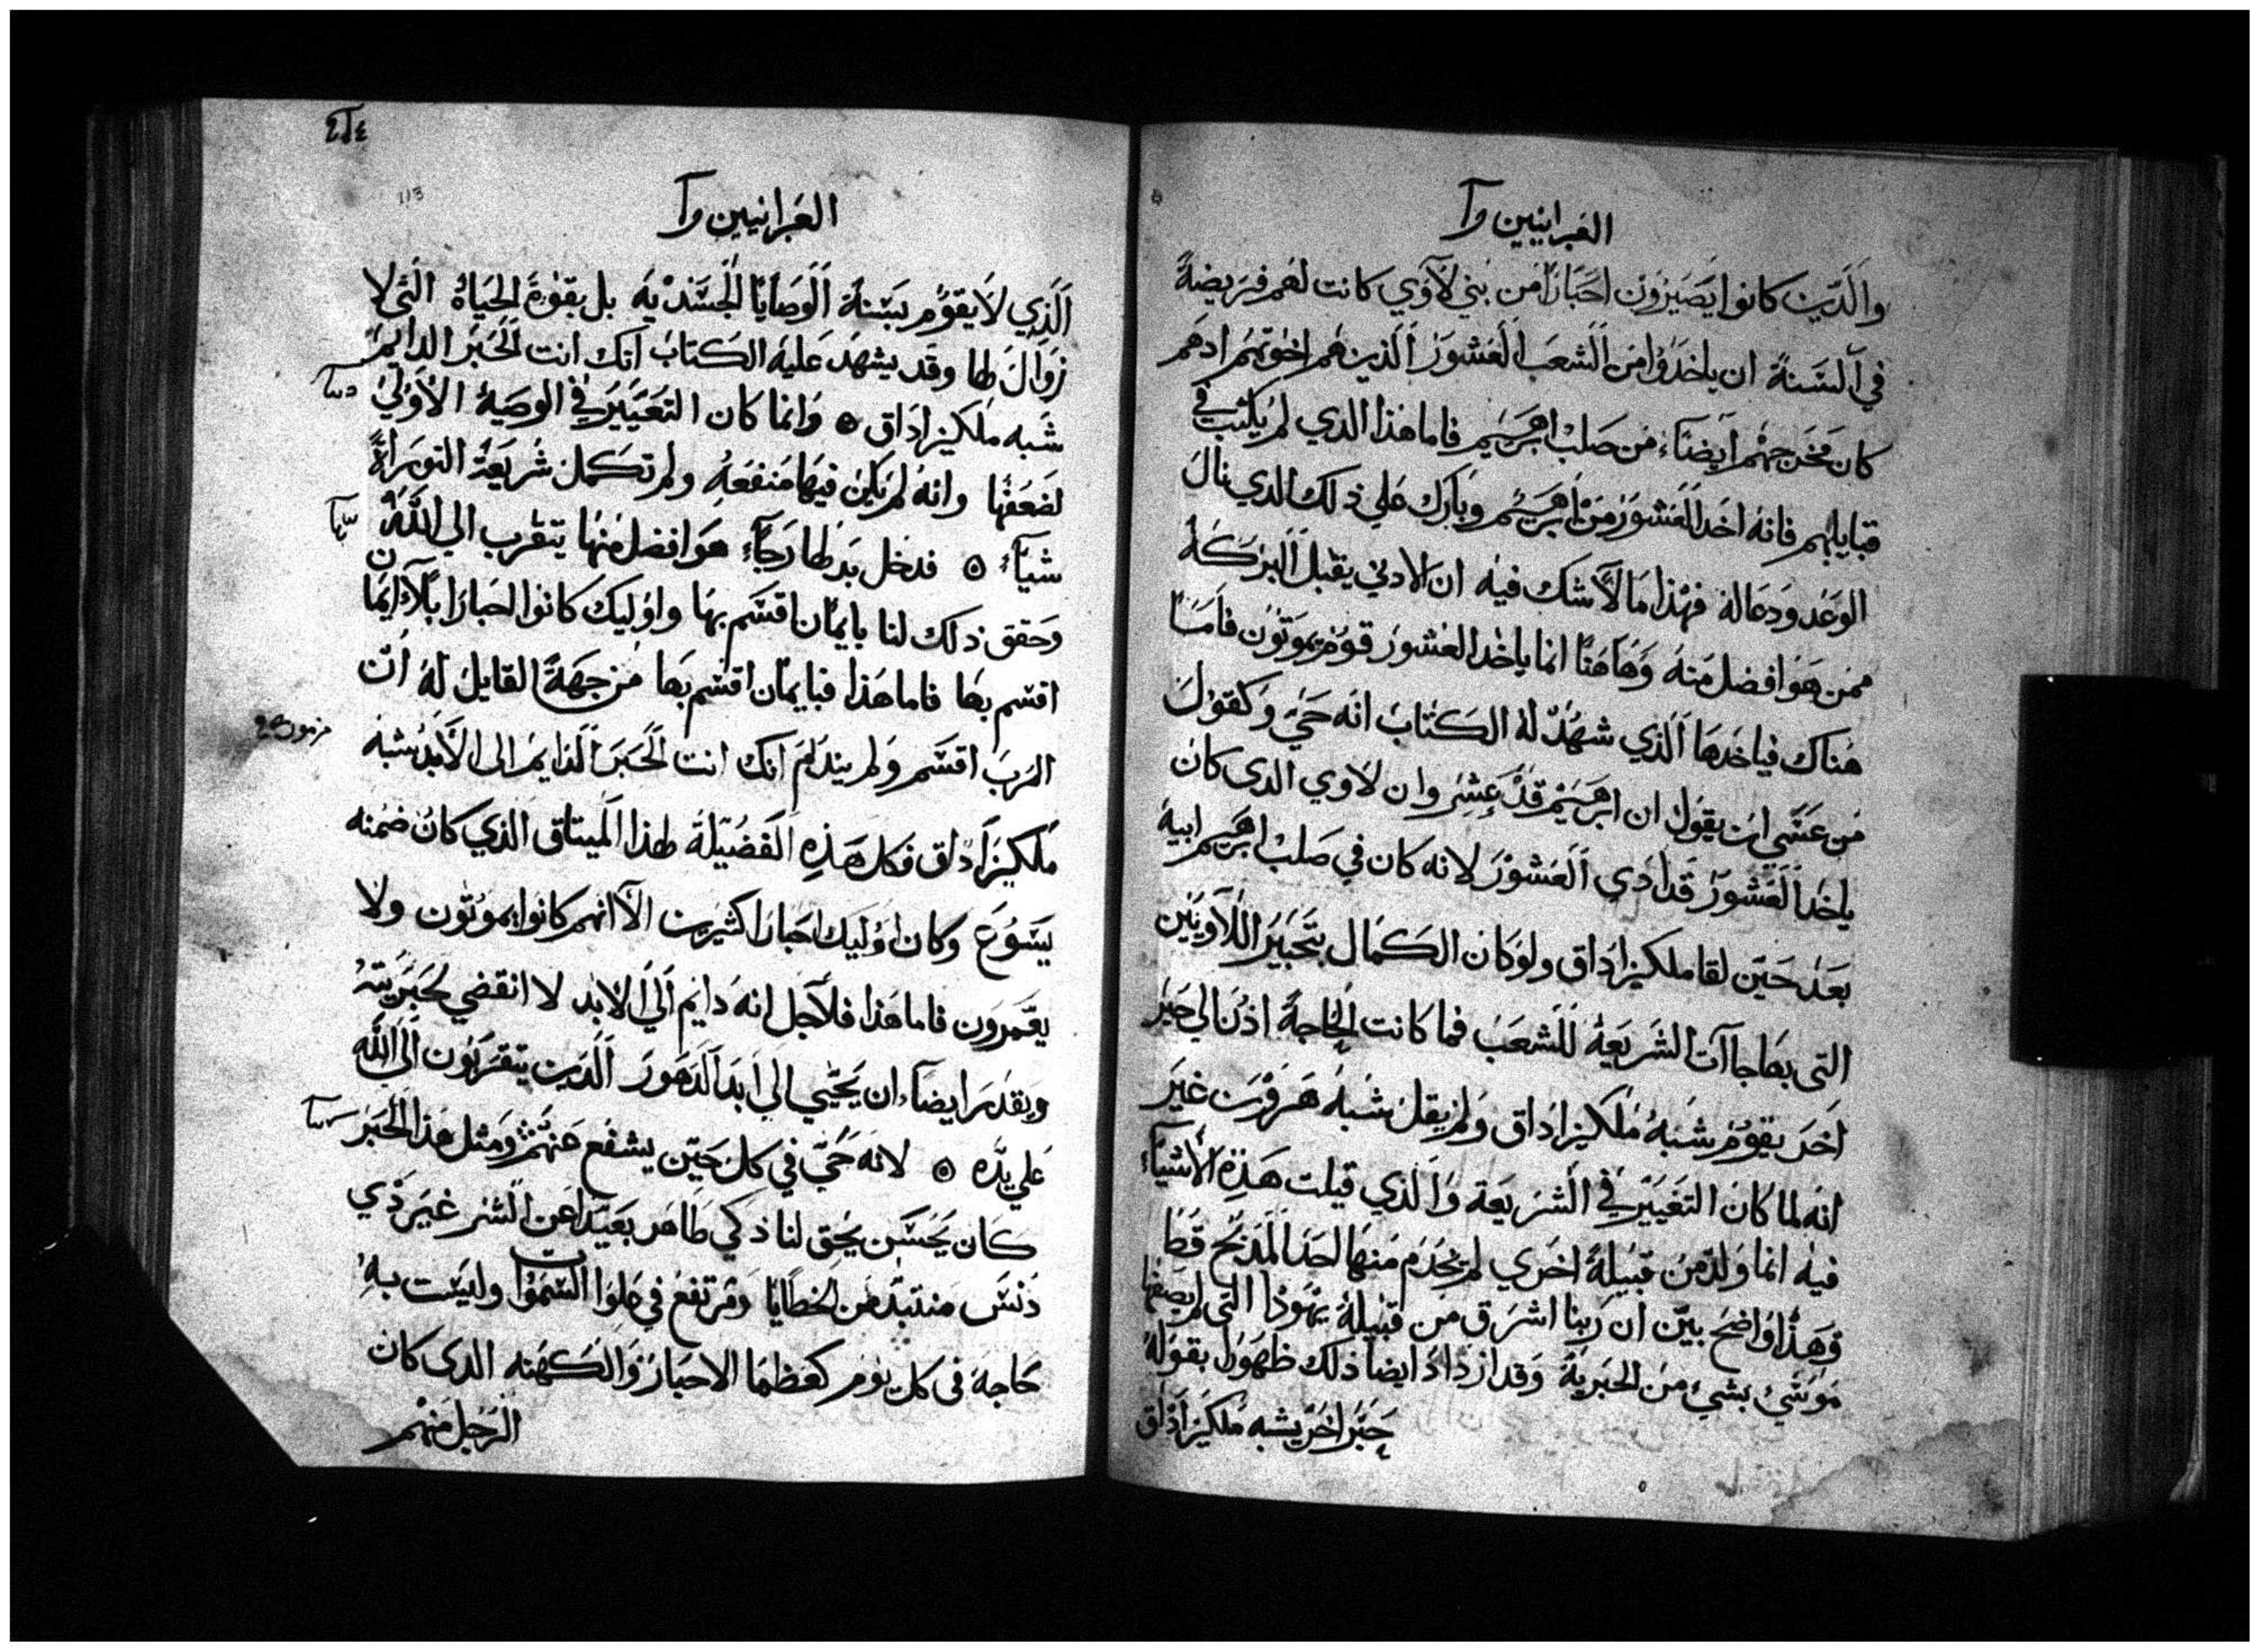 العبرانيين
والدين كانوا يصيرون احبارا من بني لآوي كانت لهم فريضة
في السنة ان ياخدوا من الشعب العشور الذين هم اخوتهم ادهم
كان مخرجهم ايضا من صلب ابرهيم فاما هذا الدي لم يكتب في
قبايلهم فانه اخد العشور من ابرهيم وبارك علي ذلك الدي نال
الوعد ودعا له فهذا ما لا شك فيه ان الادني يقبل البركة
ممن هو افضل منه وها هنا انما ياخد العشور قوم يموتون فاما
هناك فياخدها الذي شهد له الكتاب انه حي وكقول
من عسي ان يقول ان ابرهيم قد عشر وان لاوي الدي كان
ياخد العشور قد ادي العشور لانه كان في صلب ابرهيم ابيه
بعد حين لقا ملكيزاداق ولو كان الكمال بتحبير اللاويين
التي بها جاآت الشريعة للشعب فما كانت الحاجة اذن الي حبر
اخر يقوم شبه ملكيزاداق ولم يقل شبه هرون غير
انه لما كان التغيير في الشريعة والذي قيلت هذه الأشيآء
فيه انما ولد من قبيلة اخري لم يخدم منها احد المذبح قط
وهذا واضح بين ان ربنا اشرق من قبيلة يهوذا التي لم يصفها
موسي بشي من الحبرية وقد ازداد ايضا ذلك ظهورا بقوله
حبر اخر يشبه ملكيزاداق
113
العبرانيين
الذي لا يقوم بسنة الوصايا الجسدية بل بقوة الحياة التي لا
زوال لها وقد يشهد عليه الكتاب انك انت الحبر الدايم
شبه ملكيزاداق ۞ وانما كان التغيير في الوصية الأولي
لضعفها وانه لم يكن فيها منفعه ولم تكمل شريعة التوراة
شيآء ۞ فدخل بدلها رجآء هو افضل منها يتقرب الي الله
وحقق ذلك لنا بايمان اقسم بها واوليك كانوا احبارا بلا ايمان
اقسم بها فاما هذا فبايمان اقسم بها من جهة القايل له ان
الرب اقسم ولم يندم انك انت الحبر الدايم الى الأبد شبه
مزمور
ملكيزاداق فكل هذه الفضيلة لهذا الميتاق الذي كان ضمنه
يسوع وكان اوليك احبارا كثيرين الا انهم كانوا يموتون ولا
يعمرون فاما هذا فلأجل انه دايم الي الابد لا انقضي لحبريته
ويقدر ايضاء ان يحيي الي ابد الدهور الدين يتقربون الي الله
علي يده ۞ لانه حي في كل حين يشفع عنهم ومثل هذا الحبر
كان يحسن يحق لنا ذكي طاهر بعيدا عن الشر غير ذي
دنس منتبذ من الخطايا ومرتفع في علوا السموات وليست به
حاجة في كل يوم كعظما الاحبار والكهنه الدى كان
الرجل منهم